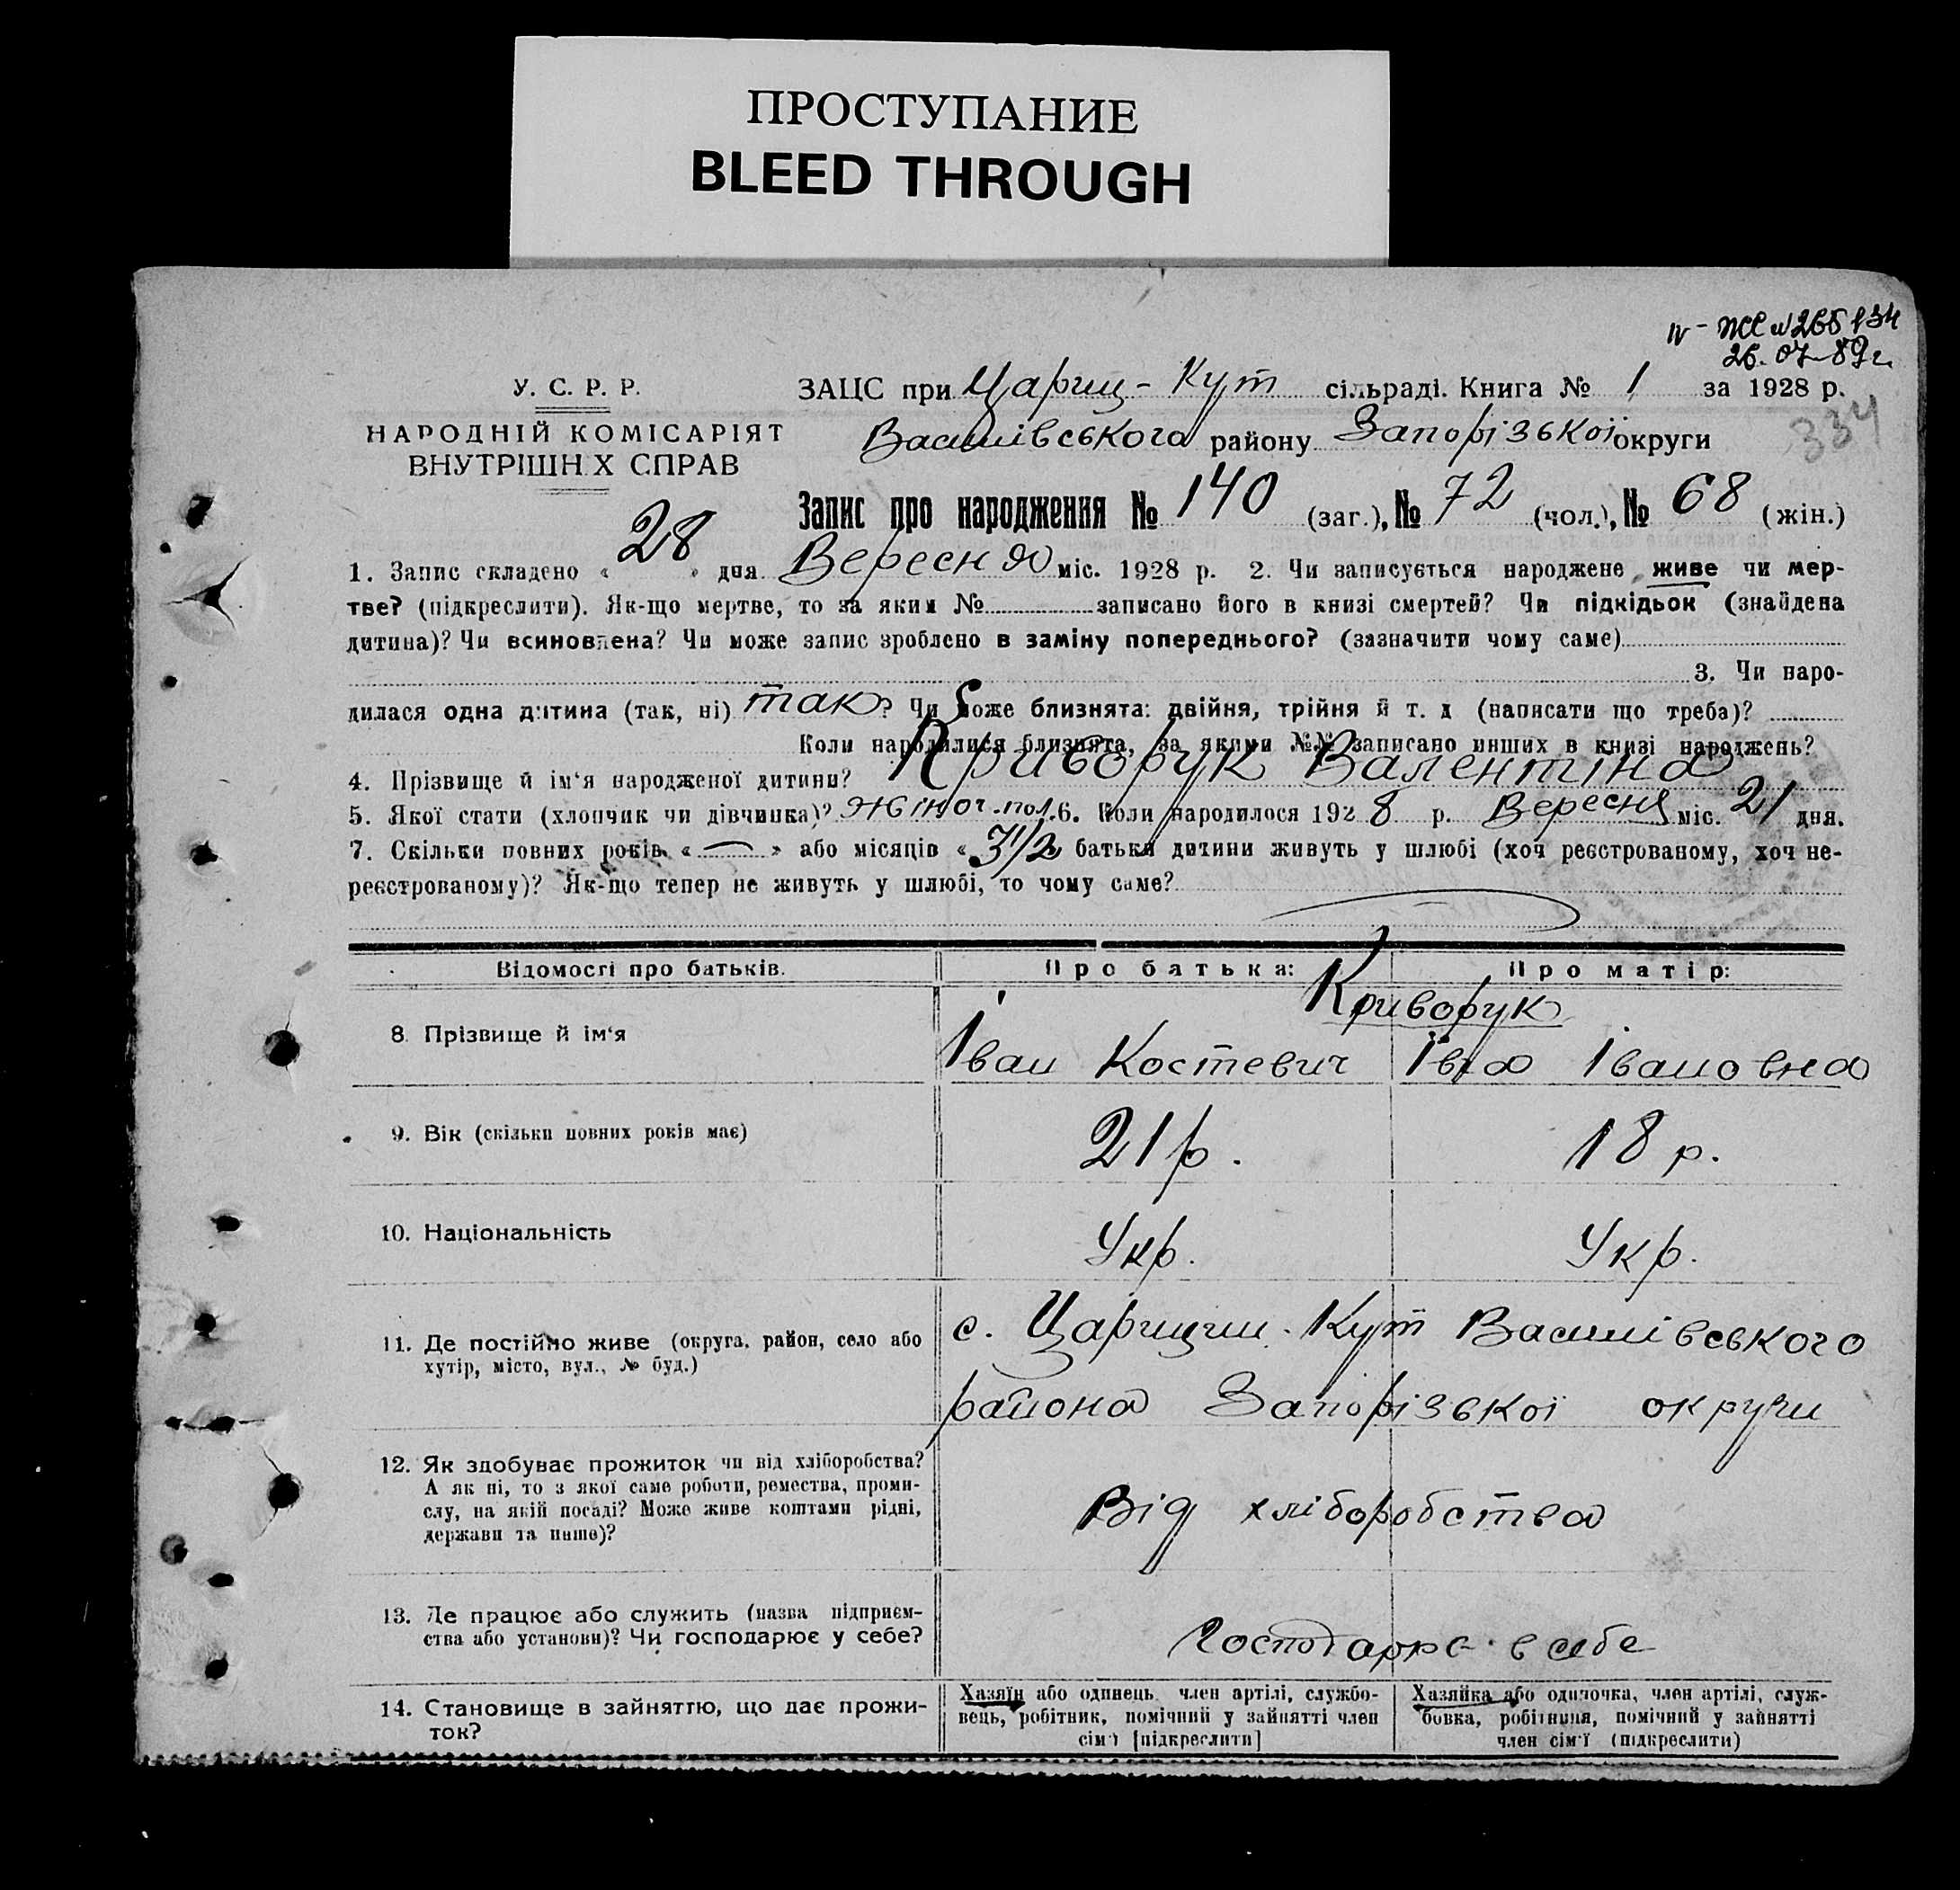 ПРОСТУПАНИЕ
BLEED THROUGH
26.07-89г.
У. С. Р. Р.
НАРОДНІЙ КОМІСАРІЯТ
ВНУТРІШНІХ СПРАВ
ЗАЦС при Цариц-Кут сільраді. Книга № 1 за 1928 р.
Василівського району Запорізької округи
334
Запис про народження № 140 (заг.), № 72 (чол.), № 68 (жін.)
1. Запис складено « 28 » дня Вересня міс. 1928 р. 2. Чи записується народжене живе чи мер-
тве? (підкреслити). Як-що мертве, то за яким № записано його в книзі смертей? Чи підкідьок (знайдена
дитина)? Чи всиновлена? Чи може запис зроблено в заміну попереднього? (зазначити чому саме)
3. Чи наро-
дилася одна дитина (так, ні) так? Чи може близнята: двійня, трійня й т. д (написати що треба)?
Коли народилися близнята, за якими №№ записано инших в книзі народжень?
4. Прізвище й ім'я народженої дитини? Криворук Валентіна
5. Якої стати (хлопчик чи дівчинка)? жіноч. пол. 6. Коли народилося 1928 р. Вересня міс. 21 дня.
7. Скільки повних років « — » або місяців « 3 1/2 » батьки дитини живуть у шлюбі (хоч реєстрованому, хоч не-
реєстрованому)? Як-що тепер не живуть у шлюбі, то чому саме?
Відомості про батьків.
Про батька:
Про матір:
8. Прізвище й ім'я
Криворук
Іван Костевич
Івановна
9. Вік (скільки повних років має)
21 р.
18 р.
10. Національність
Укр.
Укр.
11. Де постійно живе (округа, район, село або
хутір, місто, вул., № буд.)
с. Царицин-Кут Василівського
района Запорізької округи
12. Як здобуває прожиток чи від хліборобства?
А як ні, то з якої саме роботи, ремества, проми-
слу, на якій посаді? Може живе коштами рідні,
держави та инше)?
Від хліборобства
13. Де працює або служить (назва підприєм-
ства або установи)? Чи господарює у себе?
в себе
14. Становище в зайняттю, що дає прожи-
ток?
Хазяїн або одинець, член артілі, службо-
вець, робітник, помічний у зайнятті член
сім'ї [підкреслити]
Хазяйка або одиночка, член артілі, служ-
бовка, робітниця, помічний у зайнятті
член сім'ї (підкреслити)